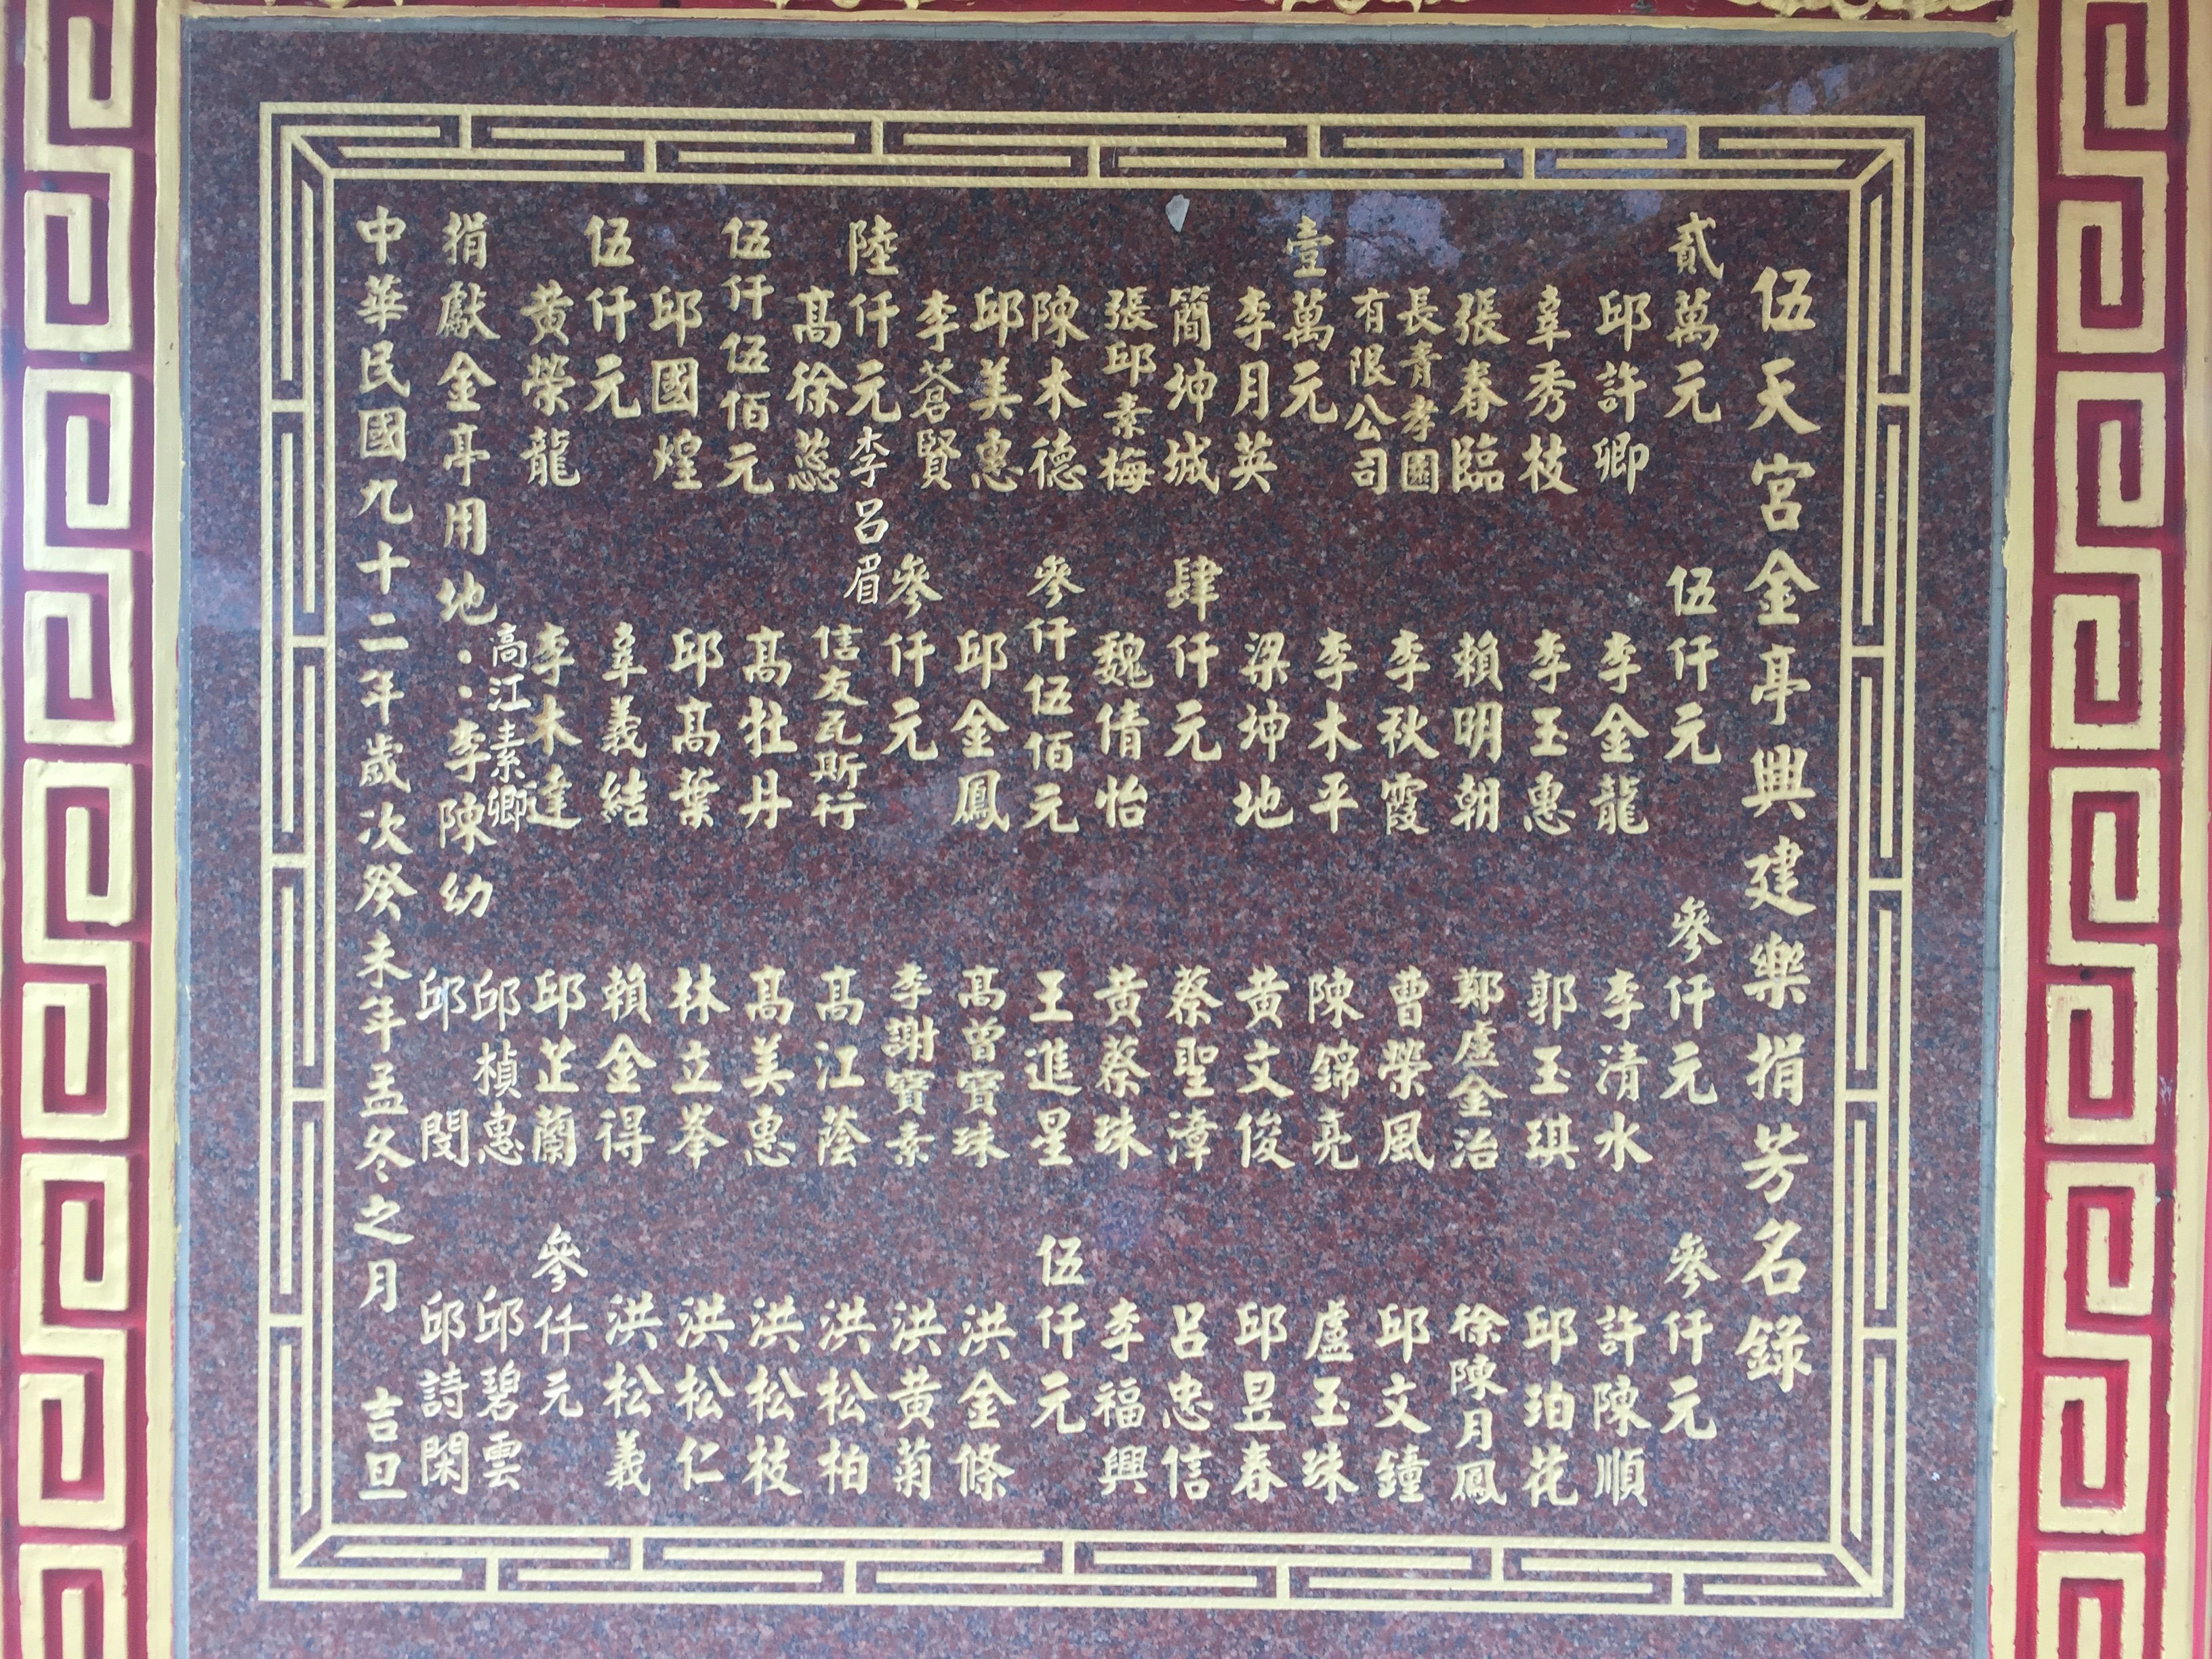 伍天宮金亭興建樂捐芳名錄
貳萬元
邱許卿
辜秀枝
張春臨
長青孝園
有限公司
壹萬元
李月英
簡坤城
張邱素梅
陳木德
邱美惠
李蒼賢
陸仟元
李呂眉
高徐蕊
伍仟伍佰元
邱國煌
伍仟元
黃榮龍
伍仟元
李金龍
李玉惠
賴明朝
李秋霞
李木平
梁坤地
肆仟元
魏倩怡
參仟伍佰元
邱金鳳
參仟元
信友瓦斯行
高牡丹
邱高葉
辜義結
李木達
高江素卿
參仟元
李清水
郭玉琪
鄭盧金治
曹榮風
陳錦亮
黃文俊
蔡聖漳
黃蔡珠
王進星
高曾寶珠
李謝寶素
高江蔭
高美惠
林立峯
賴金得
邱芷蘭
邱楨惠
邱閔
參仟元
許陳順
邱珀花
徐陳月鳳
邱文鐘
盧玉珠
邱昱春
呂忠信
李福興
伍仟元
洪金條
洪黃菊
洪松柏
洪松枝
洪松仁
洪松義
參仟元
邱碧雲
邱詩閑
捐獻金亭用地：李陳幼
中華民國九十二年歲次癸未年孟冬之月 吉旦